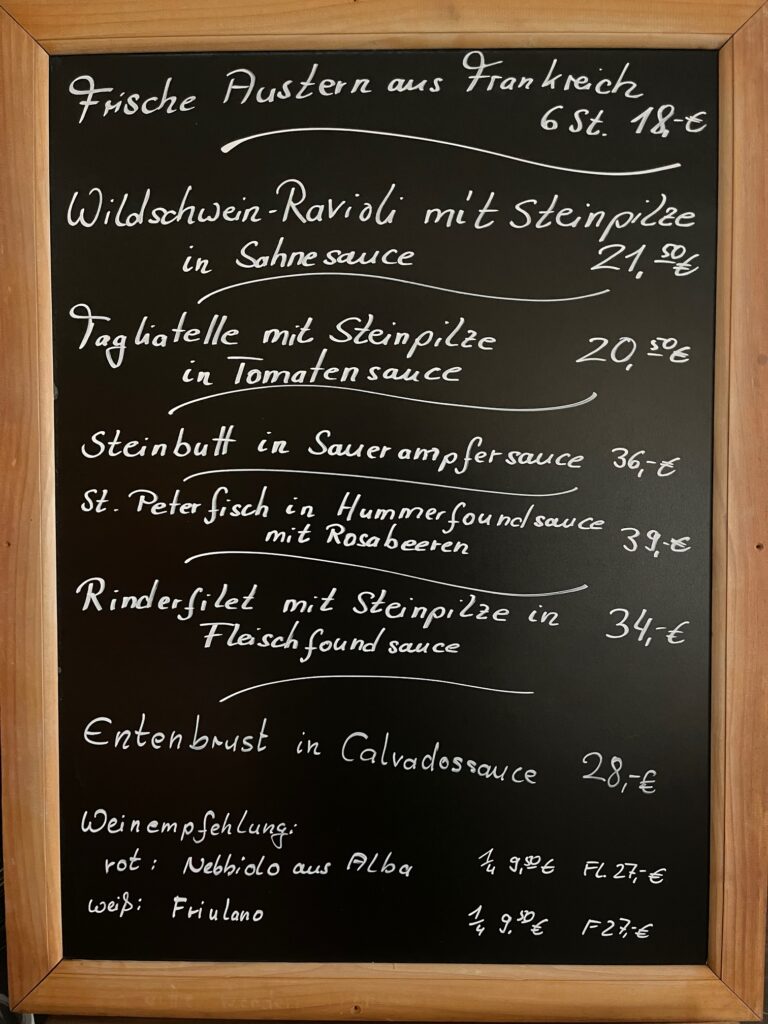 Frische Austern aus Frankreich
6 St. 18,-€
Wildschwein-Ravioli mit Steinpilze
in Sahnesauce 21,50€
Tagliatelle mit Steinpilze 20,50€
in Tomatensauce
Steinbutt in Sauerampfersauce 36,-€
St. Peterfisch in Hummerfoundsauce
mit Rosabeeren 39,-€
Rinderfilet mit Steinpilze in 34,-€
Fleischfoundsauce
Entenbrust in Calvadossauce 28,-€
Weinempfehlung:
rot: Nebbiolo aus Alba 1/4 9,50€ FL 27,-€
weiß: Friulano 1/4 9,50€ F 27,-€